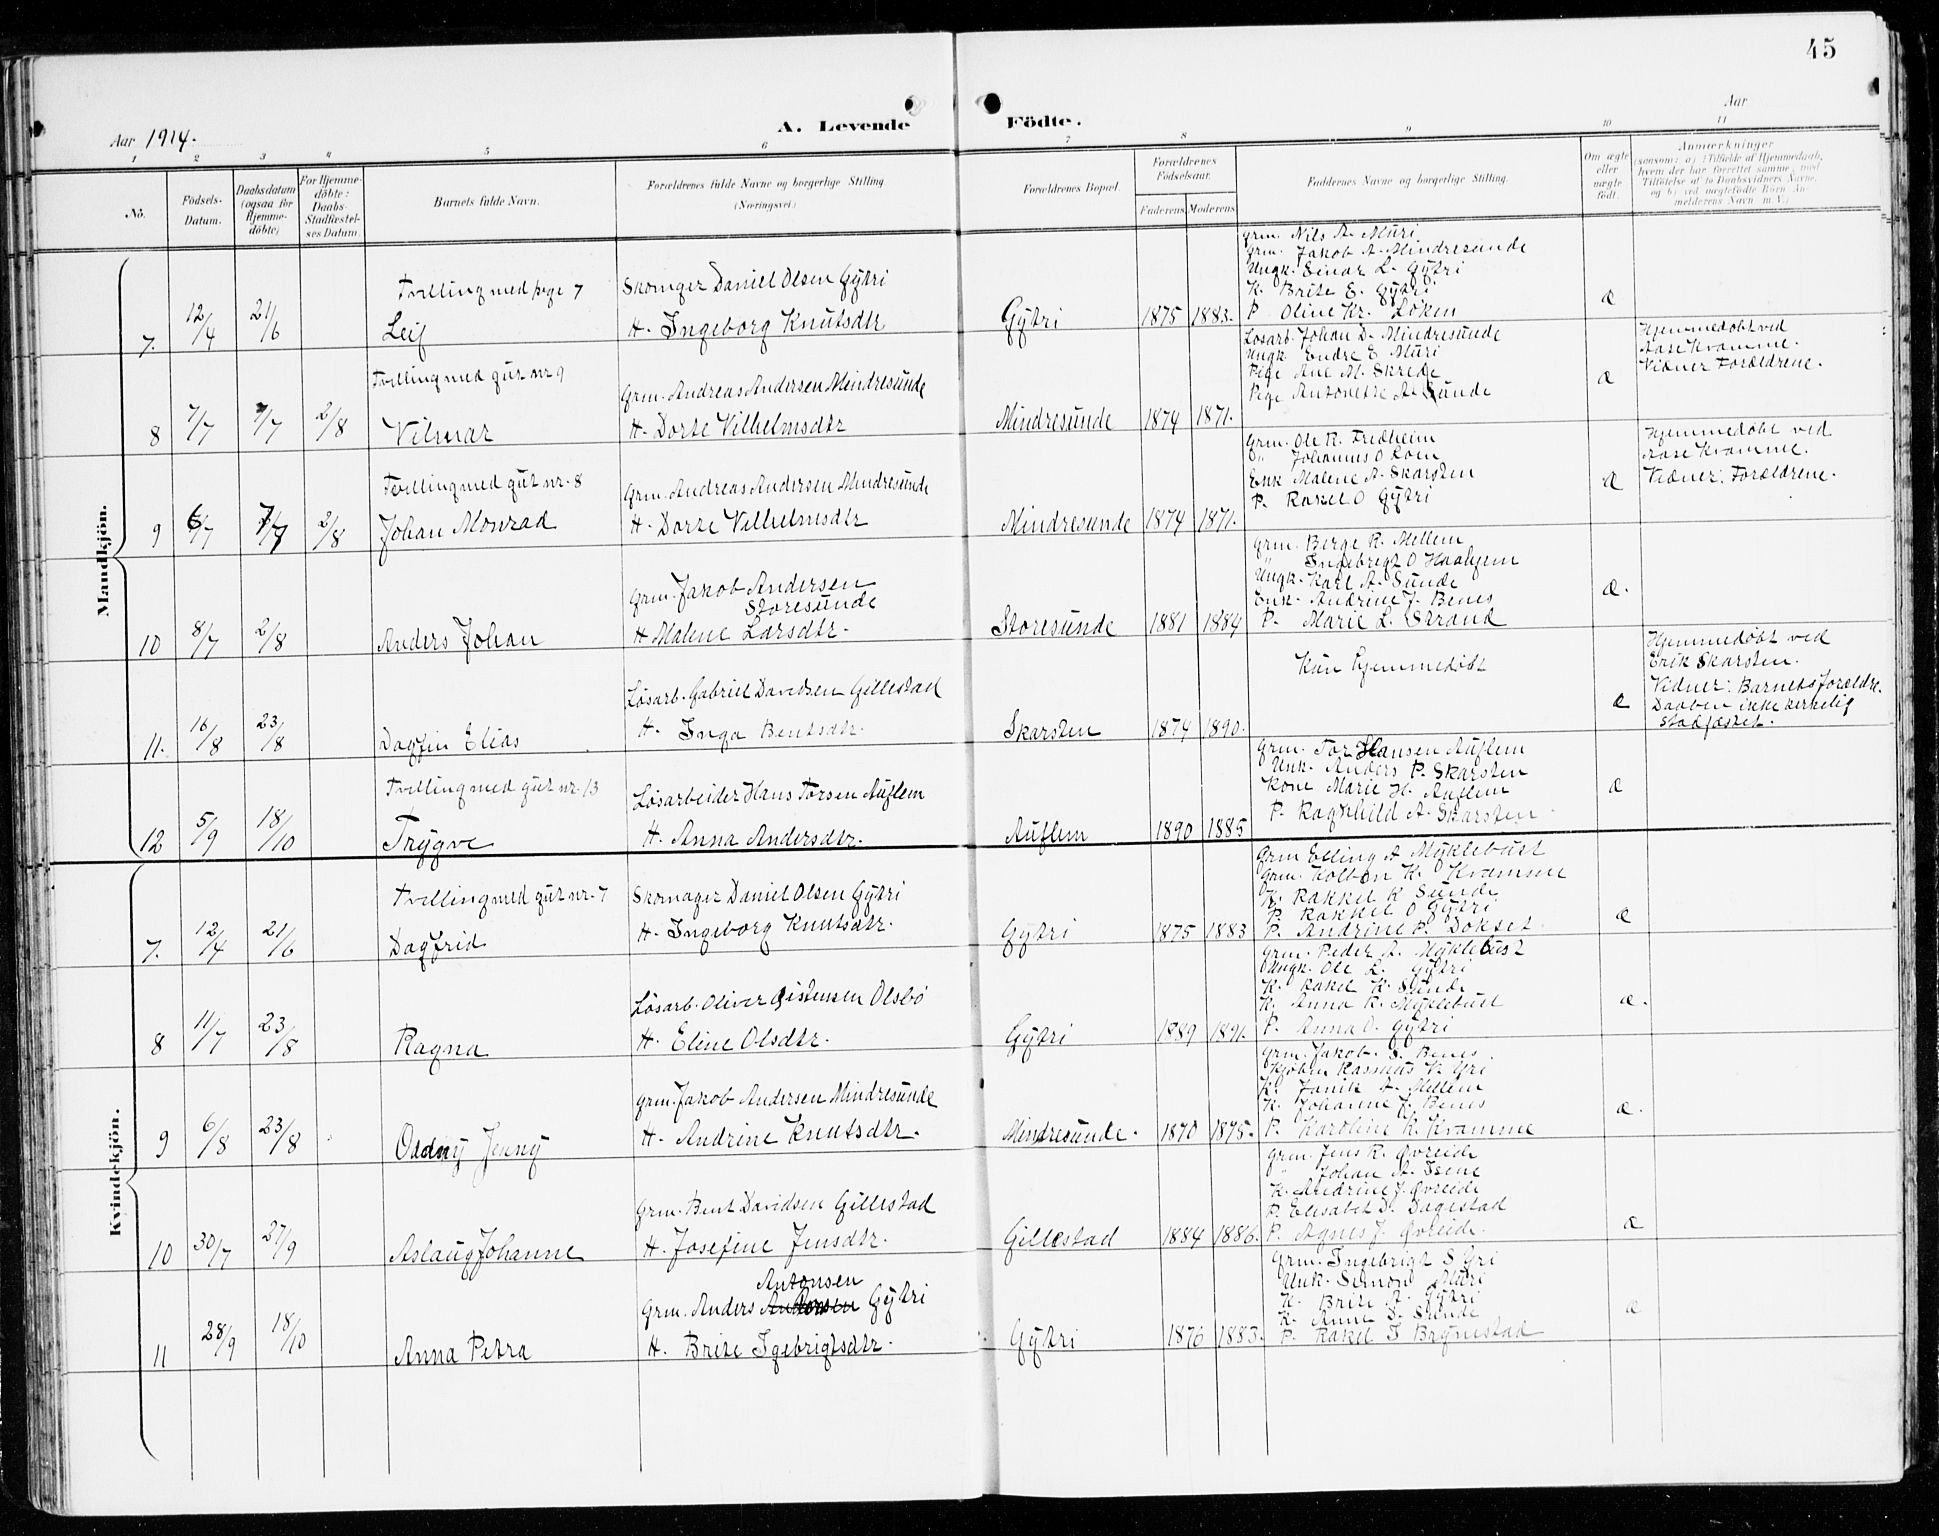 45
Aar 1914.
A. Levende Födte.
Aar
1 2 3 4 5 6 7 8 9 10 11
No.
Födsels-Datum.
Daabsdatum (ogsaa for Hjemme-döbte)
For Hjemme-döbte: Daabs-Stadfæstel-ses Datum.
Barnets fulde Navn.
Forældrenes fulde Navne og borgerlige Stilling (Næringsvei.)
Forældrenes Bopæl.
Forældrenes Födselsaar.
Faderens Moderens
Faddernes Navne og borgerlige Stilling.
Om ægte eller uægte födt.
Anmærkninger
(saasom: a) i Tilfælde af Hjemmedaab, hvem der har forrettet samme, med Tilföielse af to Daabsvidners Navne, og b) ved uægtefödte Börn Anmelderens Navn m. V.)
Mandkjön.
7. 12/4 21/6
Tvilling med pige 7
Leif
Skomager Daniel Olsen Gytri
H. Ingeborg Knutsdtr
Gytri 1875 1883.
Grm. Nils A. Muri
Grm. Jakob A. Mindresunde
Ungk. Einar L. Gytri
K. Brite E. Gytri
P. Oline Kr. Løken
æ
8 7/7 7/7 2/8
Tvilling med gut nr 9
Vilmar
Grm. Andreas Andersen Mindresunde
H. Dorte Vilhelmsdtr
Mindresunde 1874 1871.
Løsarb. Johan D. Mindresunde
Ungk Endre E Muri
Pige Ane M. Skrede
Pige Antonette A. Sunde
æ
Hjemmedøbt ved
Aase Kvamme.
Vidner Forældrene.
9 6/7 7/7 2/8
Tvilling med gut nr. 8
Johan Monrad
Grm. Andreas Andersen Mindresunde
H. Dorte Vilhelmsdtr
Mindresunde 1874 1871.
Grm. Ole R. Fredheim
" Johannes O Loen
Enk Malene A. Skarsten
P. Rakel O Gytri
æ
Hjemmedøbt ved
Aase Kvamme.
Vidner: Forældrene.
10 8/7 2/8
Anders Johan
Grm. Jakob Andersen
Storesunde
H Malene Larsdtr.
Storesunde 1881 1884
Grm. Berge R. Mellem
" Ingebregt O Haahjem
Ungk. Karl A. Sunde
Enk. Andrine J. Benes
P. Marie L. Strand
æ.
11. 16/8 23/8
Dagfin Elias
Løsarb. Gabriel Davidsen Gillestad
H. Inga Bentsdtr.
Skarsten 1874 1890.
Kun hjemmedøbt
æ
Hjemmedøbt ved
Erik Skarsten.
Vidner: Barnets forældre.
Daaben ikke kirkelig
stadfæstet.
12 5/9 18/10
Tvilling med gut nr. 13
Trygve
Løsarbeider Hans Torsen Auflem
H. Anna Andersdtr.
Auflem 1890 1885
Grm. Tor Hansen Auflem
Unk. Anders P. Skarsten
Kone Marie H. Auflem
P. Ragnhild A. Skarsten
æ
Kvindekjön.
7. 12/4 21/6
Tvilling med gut nr. 7
Dagfrid
Skomager Daniel Olsen Gytri
H. Ingeborg Knutsdtr.
Gytri 1875 1883
Grm Elling A Myklebust
Grm. Kolben K. Kvamme
K. Rakkel K Sunde
P. Rakkel O Gytri
P. Andrine P. Dokset.
æ
8 11/7 23/8
Ragna
Løsarb. Oliver Gistensen Olsbø
H. Eline Olsdtr.
Gytri 1889 1891.
Grm. Peder A. Myklebust
Ungk. Ole L. Gytri
K. Rakel K. Sunde
K. Anna R. Myklebust
P. Anna O. Gytri
æ.
9 6/8 23/8
Oddny Jenny
Grm. Jakob Andersen Mindresunde
H. Andrine Knutsdtr.
Mindresunde. 1870 1875.
Grm. Jakob. S. Benes.
Kjøbm Rasmus K. Yri
K. Janik A. Mellem
K. Johanne J. Benes
P. Karoline K. Kvamme
æ.
10 30/7 27/9
Aslaug Johanne
Grm. Bent Davidsen Gillestad
H. Josefine Jensdtr.
Gillestad 1884 1886.
Grm. Jens R. Øvreide
" Johan A. Tsene
K. Andrine J. Øvreide
P. Elisabet D. Dagestad
P. Agnes J. Øvreide.
æ
11 28/9 18/10
Anna Petra
Antonsen
Grm. Anders Gytri
H. Brite Igebrigtsdtr.
Gytri 1876 1883.
Grm. Ingebrigt S Yri
Unk. Simon Muri
K. Brite A. Gytri
K. Anne S. Sunde
P. Rakel T Brynestad
æ